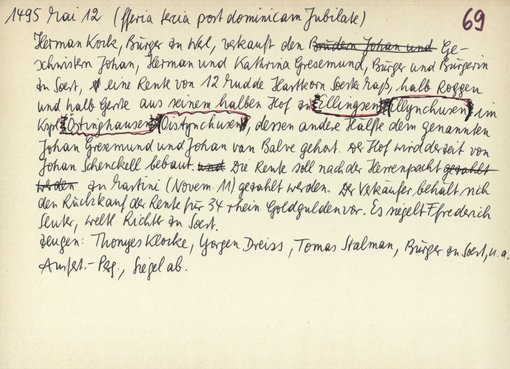 1495 Mai 12 (fferia tercia post dominicam Jubilate) 69
Herman Kock, Bürger zu Wel, verkauft den Brüdern Johan und Ge-
schwistern Johan, Herman und Kathrina Gresemund, Bürger und Bürgerin
zu Soest, eine Rente von 12 Mudde Hartkorn Soester Maß, halb Roggen
und halb Gerste aus seinem halben Hof zu Ellingsen (Ellynchusen) im
Kspl Östinghausen (Oistynchusen), dessen andere Hälfte dem genannten
Johan Gresmund und Johan van Balve gehört. Der Hof wird derzeit von
Johan Schenckell bebaut. und Die Rente soll nach der Herrenpacht gezahlt
werden zu Martini (Novem 11) gezahlt werden. Der Verkäufer behält sich
den Rückkauf der Rente für 34 rhein. Goldgulden vor. Es siegelt Ffrederich
, weltl Richter zu Soest.
Zeugen: Thonyes Klocke, Yorgen Dreiss, Tomas Stalman, Bürger zu Soest, u. a.
Ausfert. - Perg., Siegel ab.